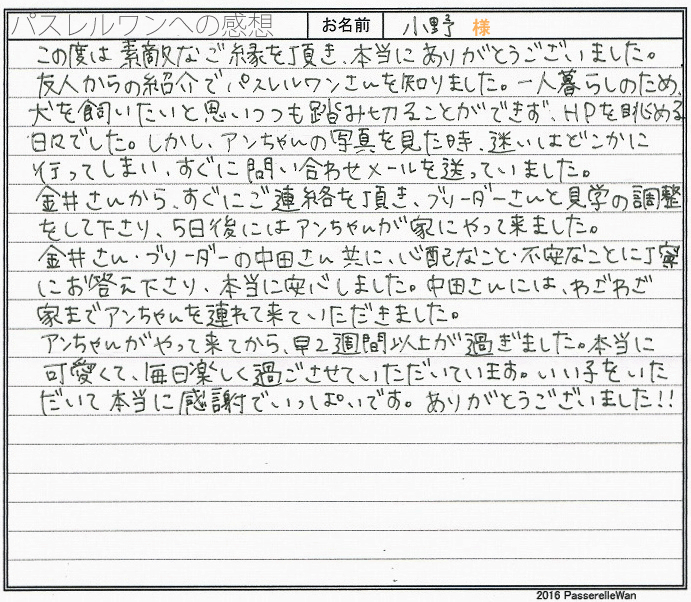 パスレルワンへの感想 お名前 小野 様
この度は素敵なご縁を頂き、本当にありがとうございました。
友人からの紹介でパスレルワンさんを知りました。一人暮らしのため、
犬を飼いたいと思いつつも踏み切ることができず、HPを眺める
日々でした。しかし、アンちゃんの写真を見た時、迷いはどこかに
行ってしまい、すぐに問い合わせメールを送っていました。
金井さんから、すぐにご連絡を頂き、ブリーダーさんと見学の調整
をして下さり、5日後にはアンちゃんが家にやって来ました。
金井さん・ブリーダーの中田さん共に、心配なこと・不安なことに丁寧
にお答え下さり、本当に安心しました。中田さんには、わざわざ
家までアンちゃんを連れて来ていただきました。
アンちゃんがやって来てから、早2週間以上が過ぎました。本当に
可愛くて、毎日楽しく過ごさせていただいています。いい子をいた
だいて本当に感謝でいっぱいです。ありがとうございました!!
2016 PasserelleWan